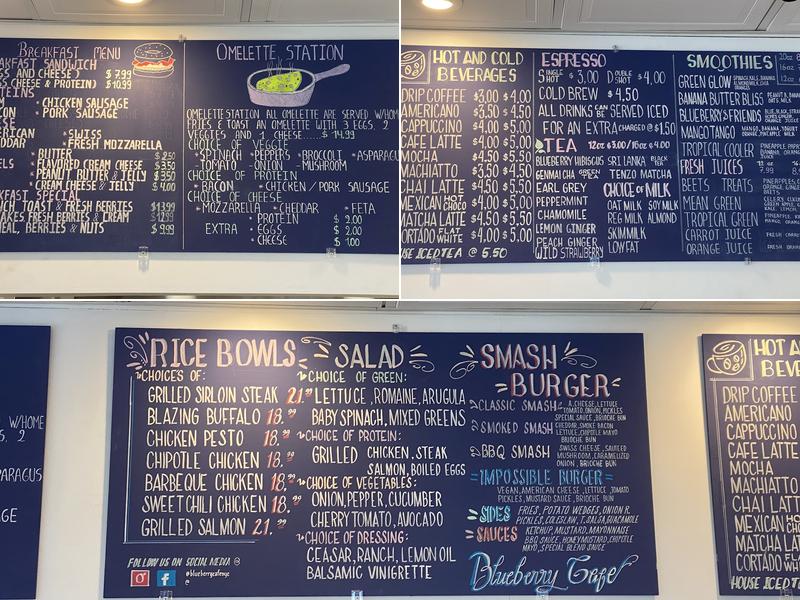 BREAKFAST MENU
FAST SANDWICH
GS AND CHEESE) $7.99
S (CHEESE & PROTEIN) $10.99
TEINS
• CHICKEN SAUSAGE
• PORK SAUSAGE
RICAN • SWISS
DDAR • FRESH MOZZARELLA
BUTTER
ELS • FLAVORED CREAM CHEESE $3.50
• PEANUT BUTTER & JELLY $3.50
• CREAM CHEESE & JELLY $4.00
KFAST SPECIAL
CH TOAST & FRESH BERRIES $13.99
AKES FRESH BERRIES & CREAM $12.99
EAL, BERRIES & NUTS $9.99
OMELETTE STATION
OMELETTE STATION ALL OMELETTE ARE SERVED W/HOM
FRIES & TOAST AN OMELETTE WITH 3 EGGS, 2
VEGGIES AND 1 CHEESE......$14.99
CHOICE OF VEGGIE
• SPINACH • PEPPERS • BROCCOLI • ASPARAGU
• TOMATO • ONION • MUSHROOM
CHOICE OF PROTEIN
• BACON • CHICKEN / PORK SAUSAGE
CHOICE OF CHEESE
• MOZZARELLA • CHEDDAR • FETA
• PROTEIN $3.00
EXTRA • EGGS $2.00
• CHEESE $1.00
HOT AND COLD
BEVERAGES
DRIP COFFEE $3.00 $4.00
AMERICANO $3.50 $4.50
CAPPUCCINO $4.00 $5.00
CAFE LATTE $4.00 $5.00
MOCHA $4.50 $5.50
MACHIATTO $4.50 $5.50
CHAI LATTE $4.50 $5.50
MEXICAN HOT CHOCO $4.50 $5.50
MATCHA LATTE $4.50 $5.50
CORTADO FLAT WHITE $4.00 $5.00
USE ICED TEA @ 5.50
ESPRESSO
SINGLE SHOT $3.00 DOUBLE SHOT $4.00
COLD BREW $4.50
ALL DRINKS CAN BE SERVED ICED
FOR AN EXTRA CHARGED @ $1.50
TEA 12oz $3.00/16oz $4.00
BLUEBERRY HIBISCUS
GENMAICHA GREEN
EARL GREY
PEPPERMINT
CHAMOMILE
LEMON GINGER
PEACH GINGER
WILD STRAWBERRY
SRI LANKA BLACK
TENZO MATCHA
CHOICE OF MILK
OAT MILK SOY MILK
REG MILK ALMOND
SKIM MILK
LOW FAT
SMOOTHIES
GREEN GLOW
BANANA BUTTER BLISS
BLUEBERRY&FRIENDS
MANGO TANGO
TROPICAL COOLER
FRESH JUICES
BEETS TREATS
MEAN GREEN
TROPICAL GREEN
CARROT JUICE
ORANGE JUICE
W/HOME
S, 2
PARAGUS
AGE
RICE BOWLS
CHOICE'S OF:
GRILLED SIRLOIN STEAK 21.99
BLAZING BUFFALO 18.99
CHICKEN PESTO 18.99
CHIPOTLE CHICKEN 18.99
BARBEQUE CHICKEN 18.99
SWEET CHILI CHICKEN 18.99
GRILLED SALMON 21.99
FOLLOW US ON SOCIAL MEDIA @
#blueberrycafenyc
@
SALAD
CHOICE OF GREEN:
LETTUCE, ROMAINE, ARUGULA
BABY SPINACH, MIXED GREENS
CHOICE OF PROTEIN:
GRILLED CHICKEN, STEAK
SALMON, BOILED EGGS
CHOICE OF VEGETABLES:
ONION, PEPPER, CUCUMBER
CHERRY TOMATO, AVOCADO
CHOICE OF DRESSING:
CEASAR, RANCH, LEMON OIL
BALSAMIC VINIGRETTE
SMASH
BURGER
CLASSIC SMASH A.CHEESE, LETTUCE
TOMATO, ONION, PICKLES
SPECIAL SAUCE, BRIOCHE BUN
SMOKED SMASH CHEDDAR, SMOKE BACON
LETTUCE, CHIPOTLE MAYO
BRIOCHE BUN
BBQ SMASH SWISS CHEESE, SAUTEED
MUSHROOM, CARAMELIZED
ONION, BRIOCHE BUN
IMPOSSIBLE BURGER
VEGAN, AMERICAN CHEESE, LETTUCE, TOMATO
PICKLES, MUSTARD SAUCE, BRIOCHE BUN
SIDES FRIES, POTATO WEDGES, ONION R.
PICKLES, COLESLAW, T. SALSA, GUACAMOLE
SAUCES KETCHUP, MUSTARD, MAYONNAISE
BBQ SAUCE, HONEY MUSTARD, CHIPOTLE
MAYO, SPECIAL BLEND SAUCE
Blueberry Cafe!
HOT A
BEVE
DRIP COFFEE
AMERICANO
CAPPUCCINO
CAFE LATTE
MOCHA
MACHIATTO
CHAI LATTE
MEXICAN
MATCHA LA
CORTADO
HOUSE ICED T